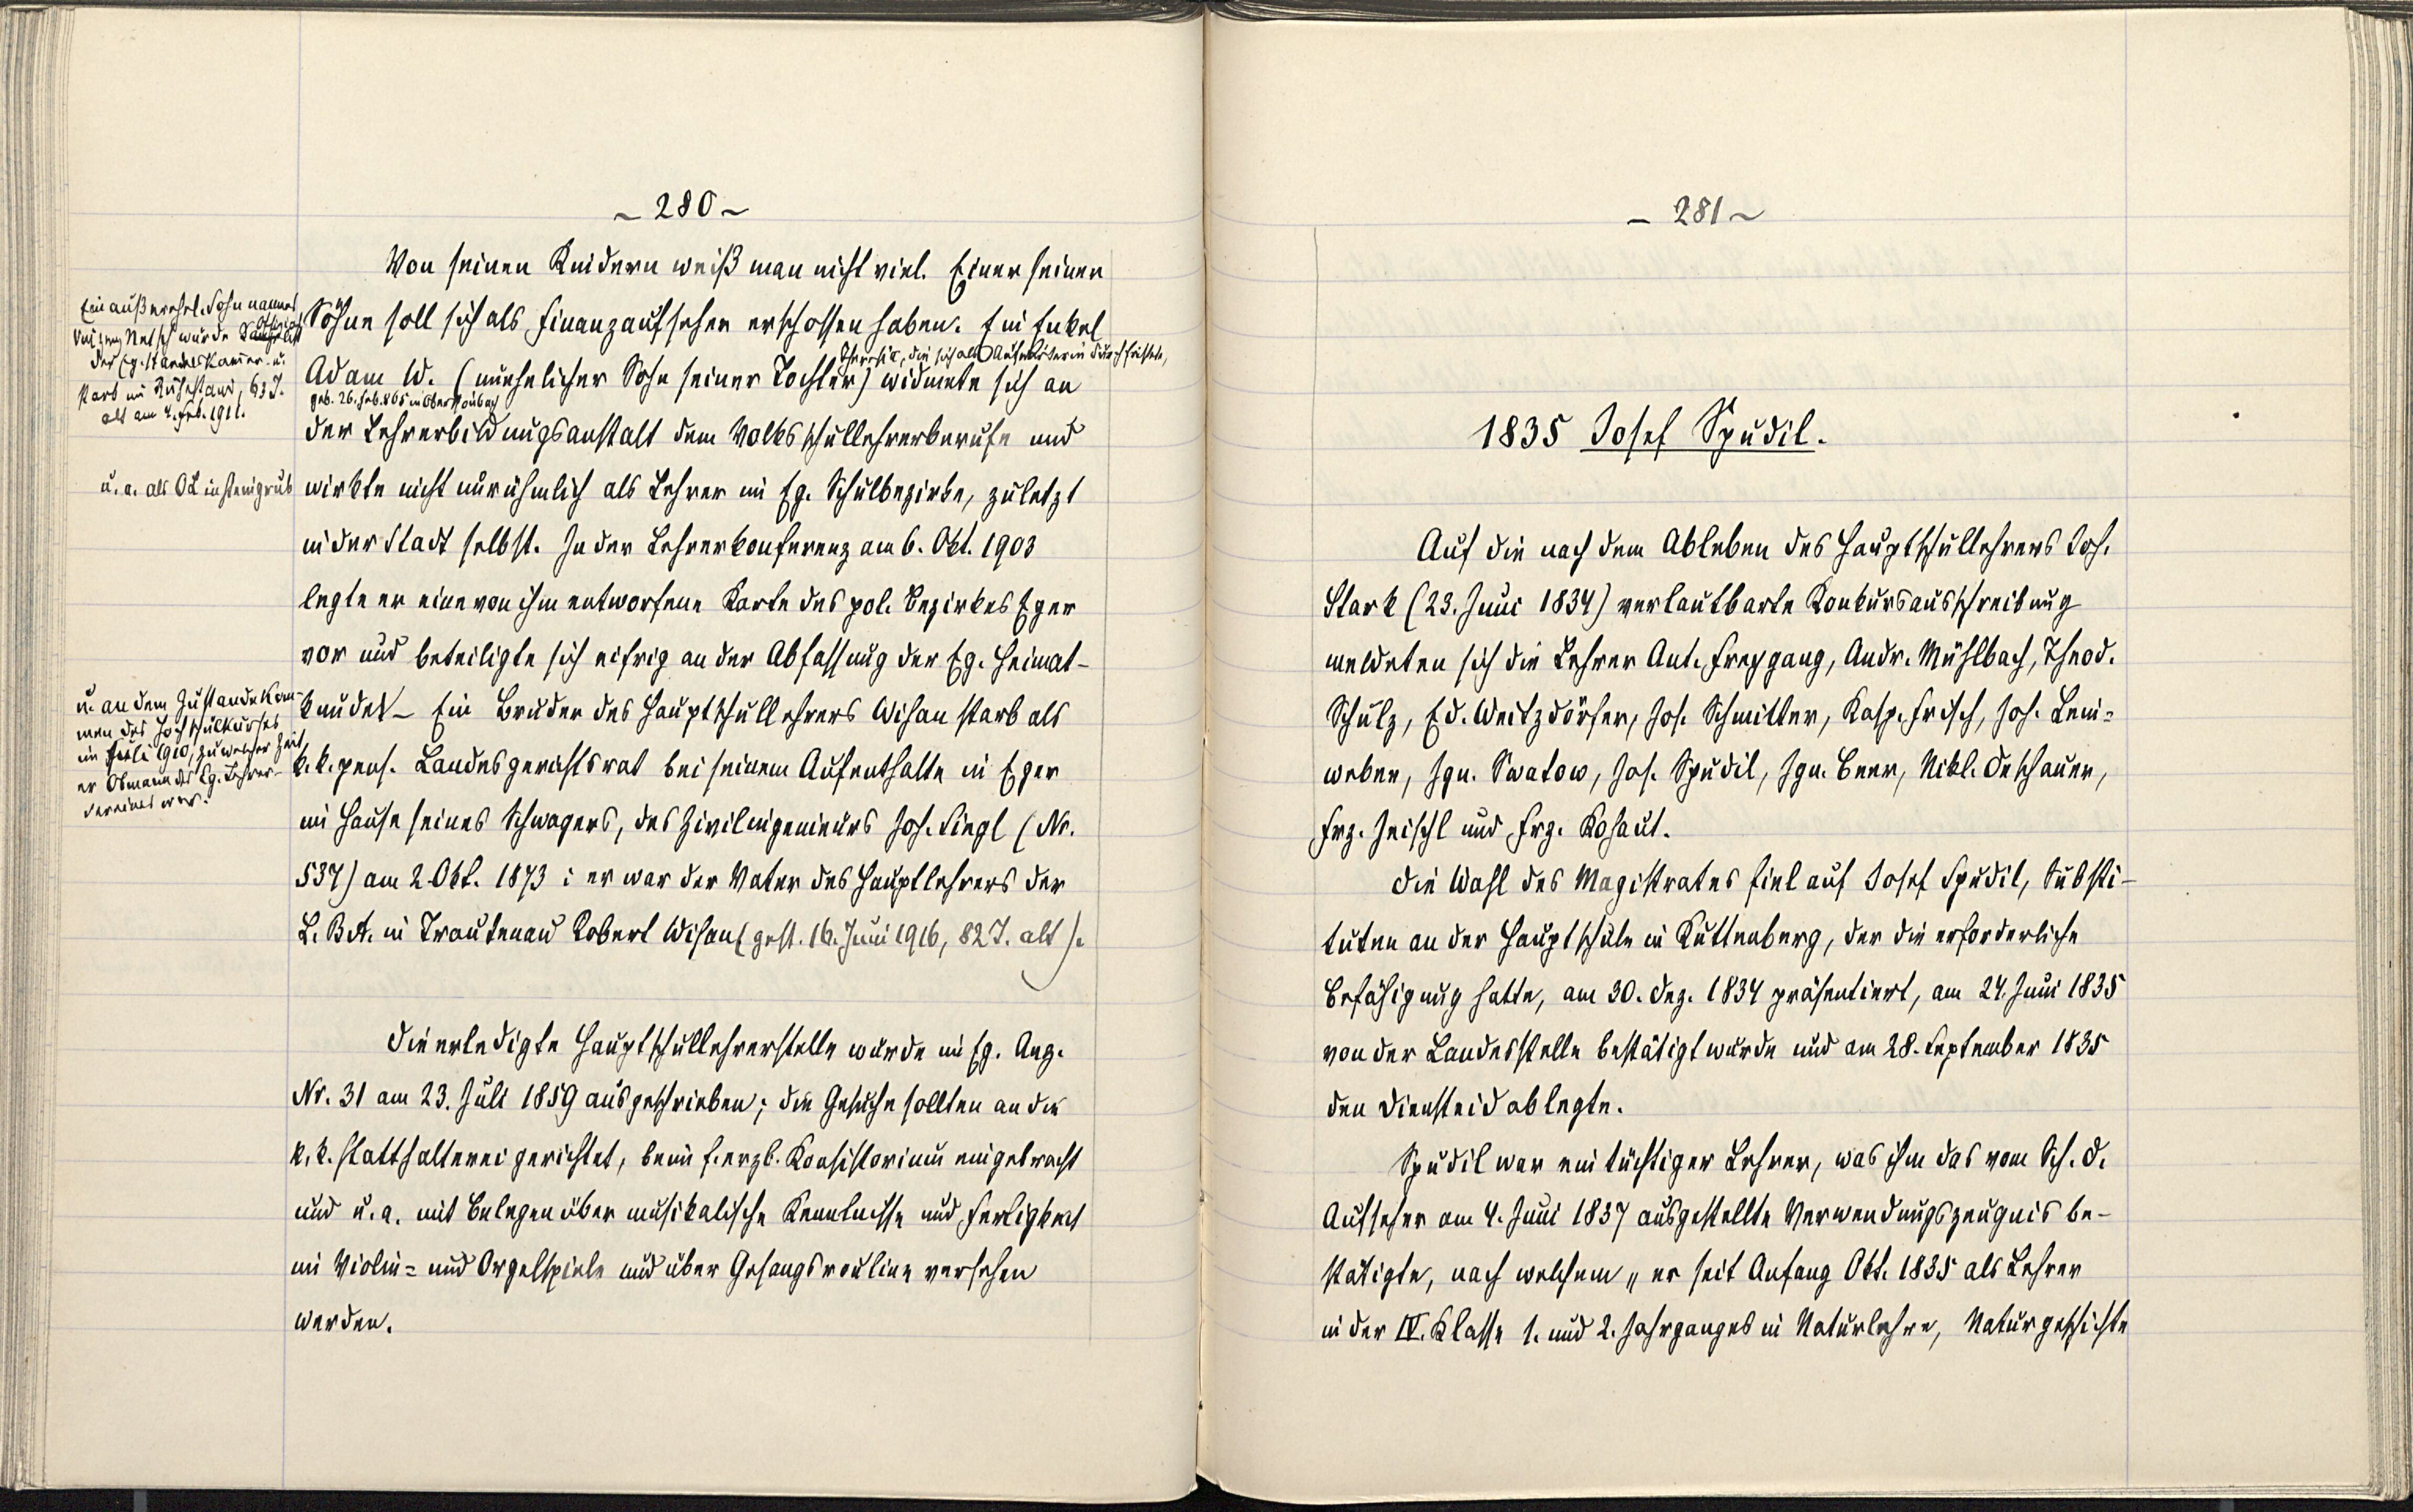 ~ 280 ~
Von seinen Kindern weiß man nicht viel. Einer seiner
Söhne soll sich als Finanzaufseher erschossen haben. Ein Enkel
Theresie, die sich als Aufwärterin durchfristete,
Adam W. (unehelicher Sohn seiner Tochter) widmete sich an
geb. 26. Feb. 865 in
der Lehrerbildungsanstalt dem Volksschullehrerberufe und
wirkte nicht unrühmlich als Lehrer im Eg. Schulbezirke, zuletzt
in der Stadt selbst. In der Lehrerkonferenz am 6. Okt. 1903
legte er eine von ihm entworfene Karte des pol. Bezirkes Eger
vor und beteiligte sich eifrig an der Abfassung der Eg. Heimat-
kunde. – Ein Bruder des Hauptschullehrers Wihan starb als
k. k. pens. Landesgerichtsrat bei seinem Aufenthalte in Eger
im Hause seines Schwagers, des Zivilingenieurs Joh. Siegl (Nr.
537) am 2. Okt. 1873 ; er war der Vater des Hauptlehrers der
L. B. A. in Trautenau Robert Wihan (gest. 16. Juni 1916, 82 J. alt).
Die erledigte Hauptschullehrerstelle wurde im Eg. Anz.
Nr. 31 am 23. Juli 1859 ausgeschrieben; die Gesuche sollten an die
k. k. Statthalterei gerichtet, beim f. erzb. Konsistorium eingebracht
und u. a. mit Belegen über musikalische Kenntnisse und Fertigkeit
im Violin= und Orgelspiele und über Gesangsroutine versehen
werden.
Ein außerehel. Sohn namens
Netsch wurde
der Eg. Handelskammer u.
starb im Ruhestand, 63 J.
alt am 4. Feb. 1911.
u. a. als OL in Steingrub
u. an dem Zustandekom-
men des Hochschulkurses
im Juli 1910, zu welcher Zeit
er Obmann des Eg. Lehrer-
vereines war.
– 281 ~
1835 Josef Spudil.
Auf die nach dem Ableben des Hauptschullehrers Joh.
Stark (23. Juni 1834) verlautbarte Konkursausschreibung
meldeten sich die Lehrer Ant. Freygang, Andr. Mühlbach, Theod.
Schulz, Ed. Weitzdörfer, Jos. Schmitter, Kasp. Frisch, Joh. Lein=
weber, Ign. Swatow, Jos. Spudil, Ign. Beer, Nikl. Deschauer,
Frz. Zeischl und Frz. Kohaut.
Die Wahl des Magistrates fiel auf Josef Spudil, Substi-
tuten an der Hauptschule in Kuttenberg, der die erforderliche
Befähigung hatte, am 30. Dez. 1834 präsentiert, am 24. Juni 1835
von der Landesstelle bestätigt wurde und am 28. September 1835
den Diensteid ablegte.
Spudil war ein tüchtiger Lehrer, was ihm das vom Sch. D.
Aufseher am 4. Juni 1837 ausgestellte Verwendungszeugnis be-
stätigte, nach welchem „er seit Anfang Okt. 1835 als Lehrer
in der IV. Klasse 1. und 2. Jahrganges in Naturlehre, Naturgeschichte